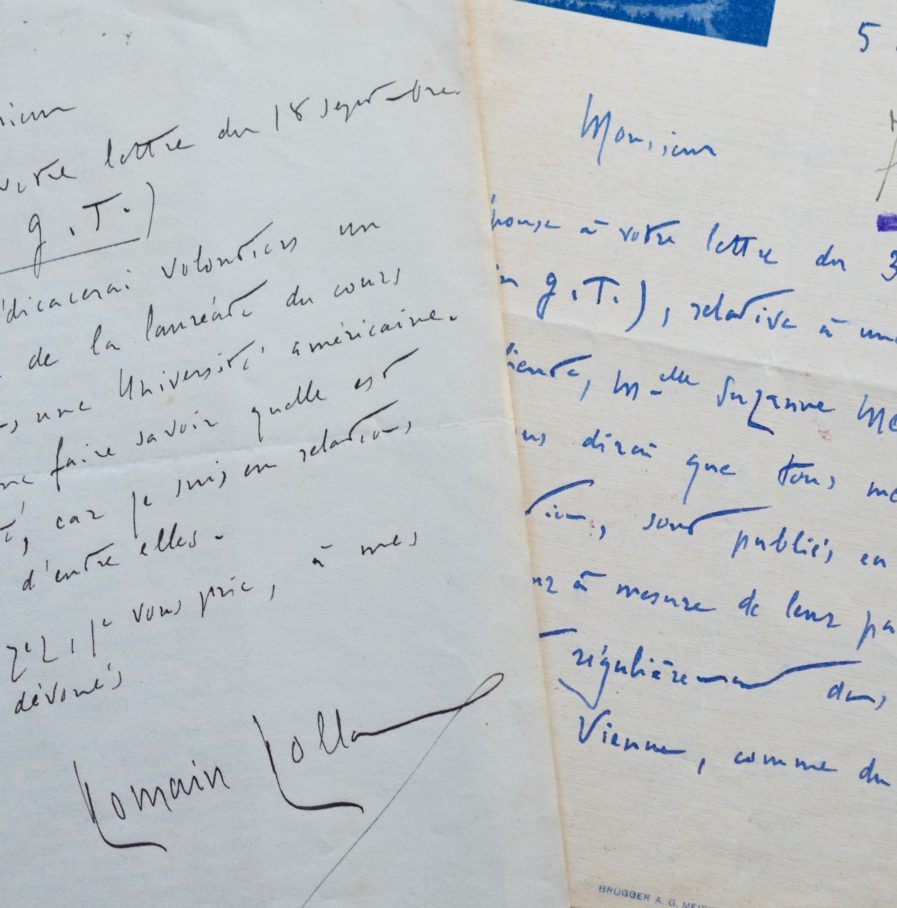 votre lettre du 18 septembre
g.T.)
dédicacerai volontiers un
de la lauréate du cours
une Université américaine.
me faire savoir quelle est
, car je suis en relations
d'entre elles.
je vous prie, à mes
dévoués
Romain Rolland
5
Monsieur
réponse à votre lettre du 3
g.T.), relative à une
, Melle Suzanne Me
dirai que tous me
, sont publiés en
à mesure de leur pa
régulièrement dans
Vienne, comme du
BRUGGER A. G. MEI